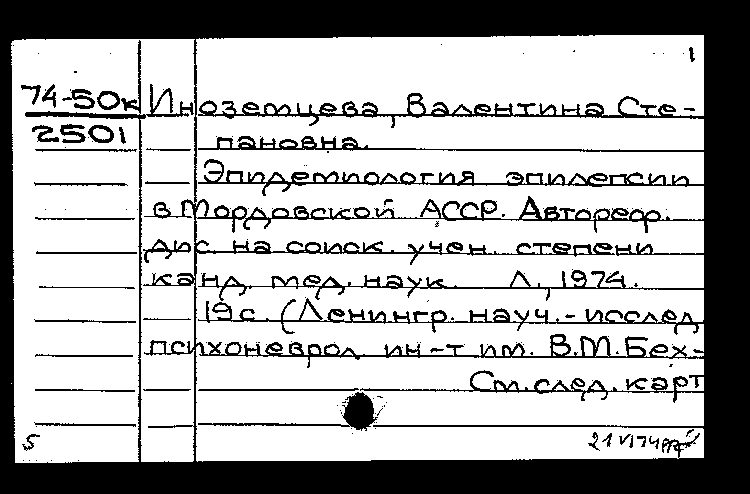 1
74-50к Иноземцева, Валентина Сте-
2501 пановна.
Эпидемиология эпилепсии
в Мордовской АССР. Автореф.
дис. на соиск. учен. степени
канд. мед. наук. Л., 1974.
19 с. (Ленингр. науч.-исслед.
психоневрол. ин-т им. В.М.Бех-
См. след. карт
5